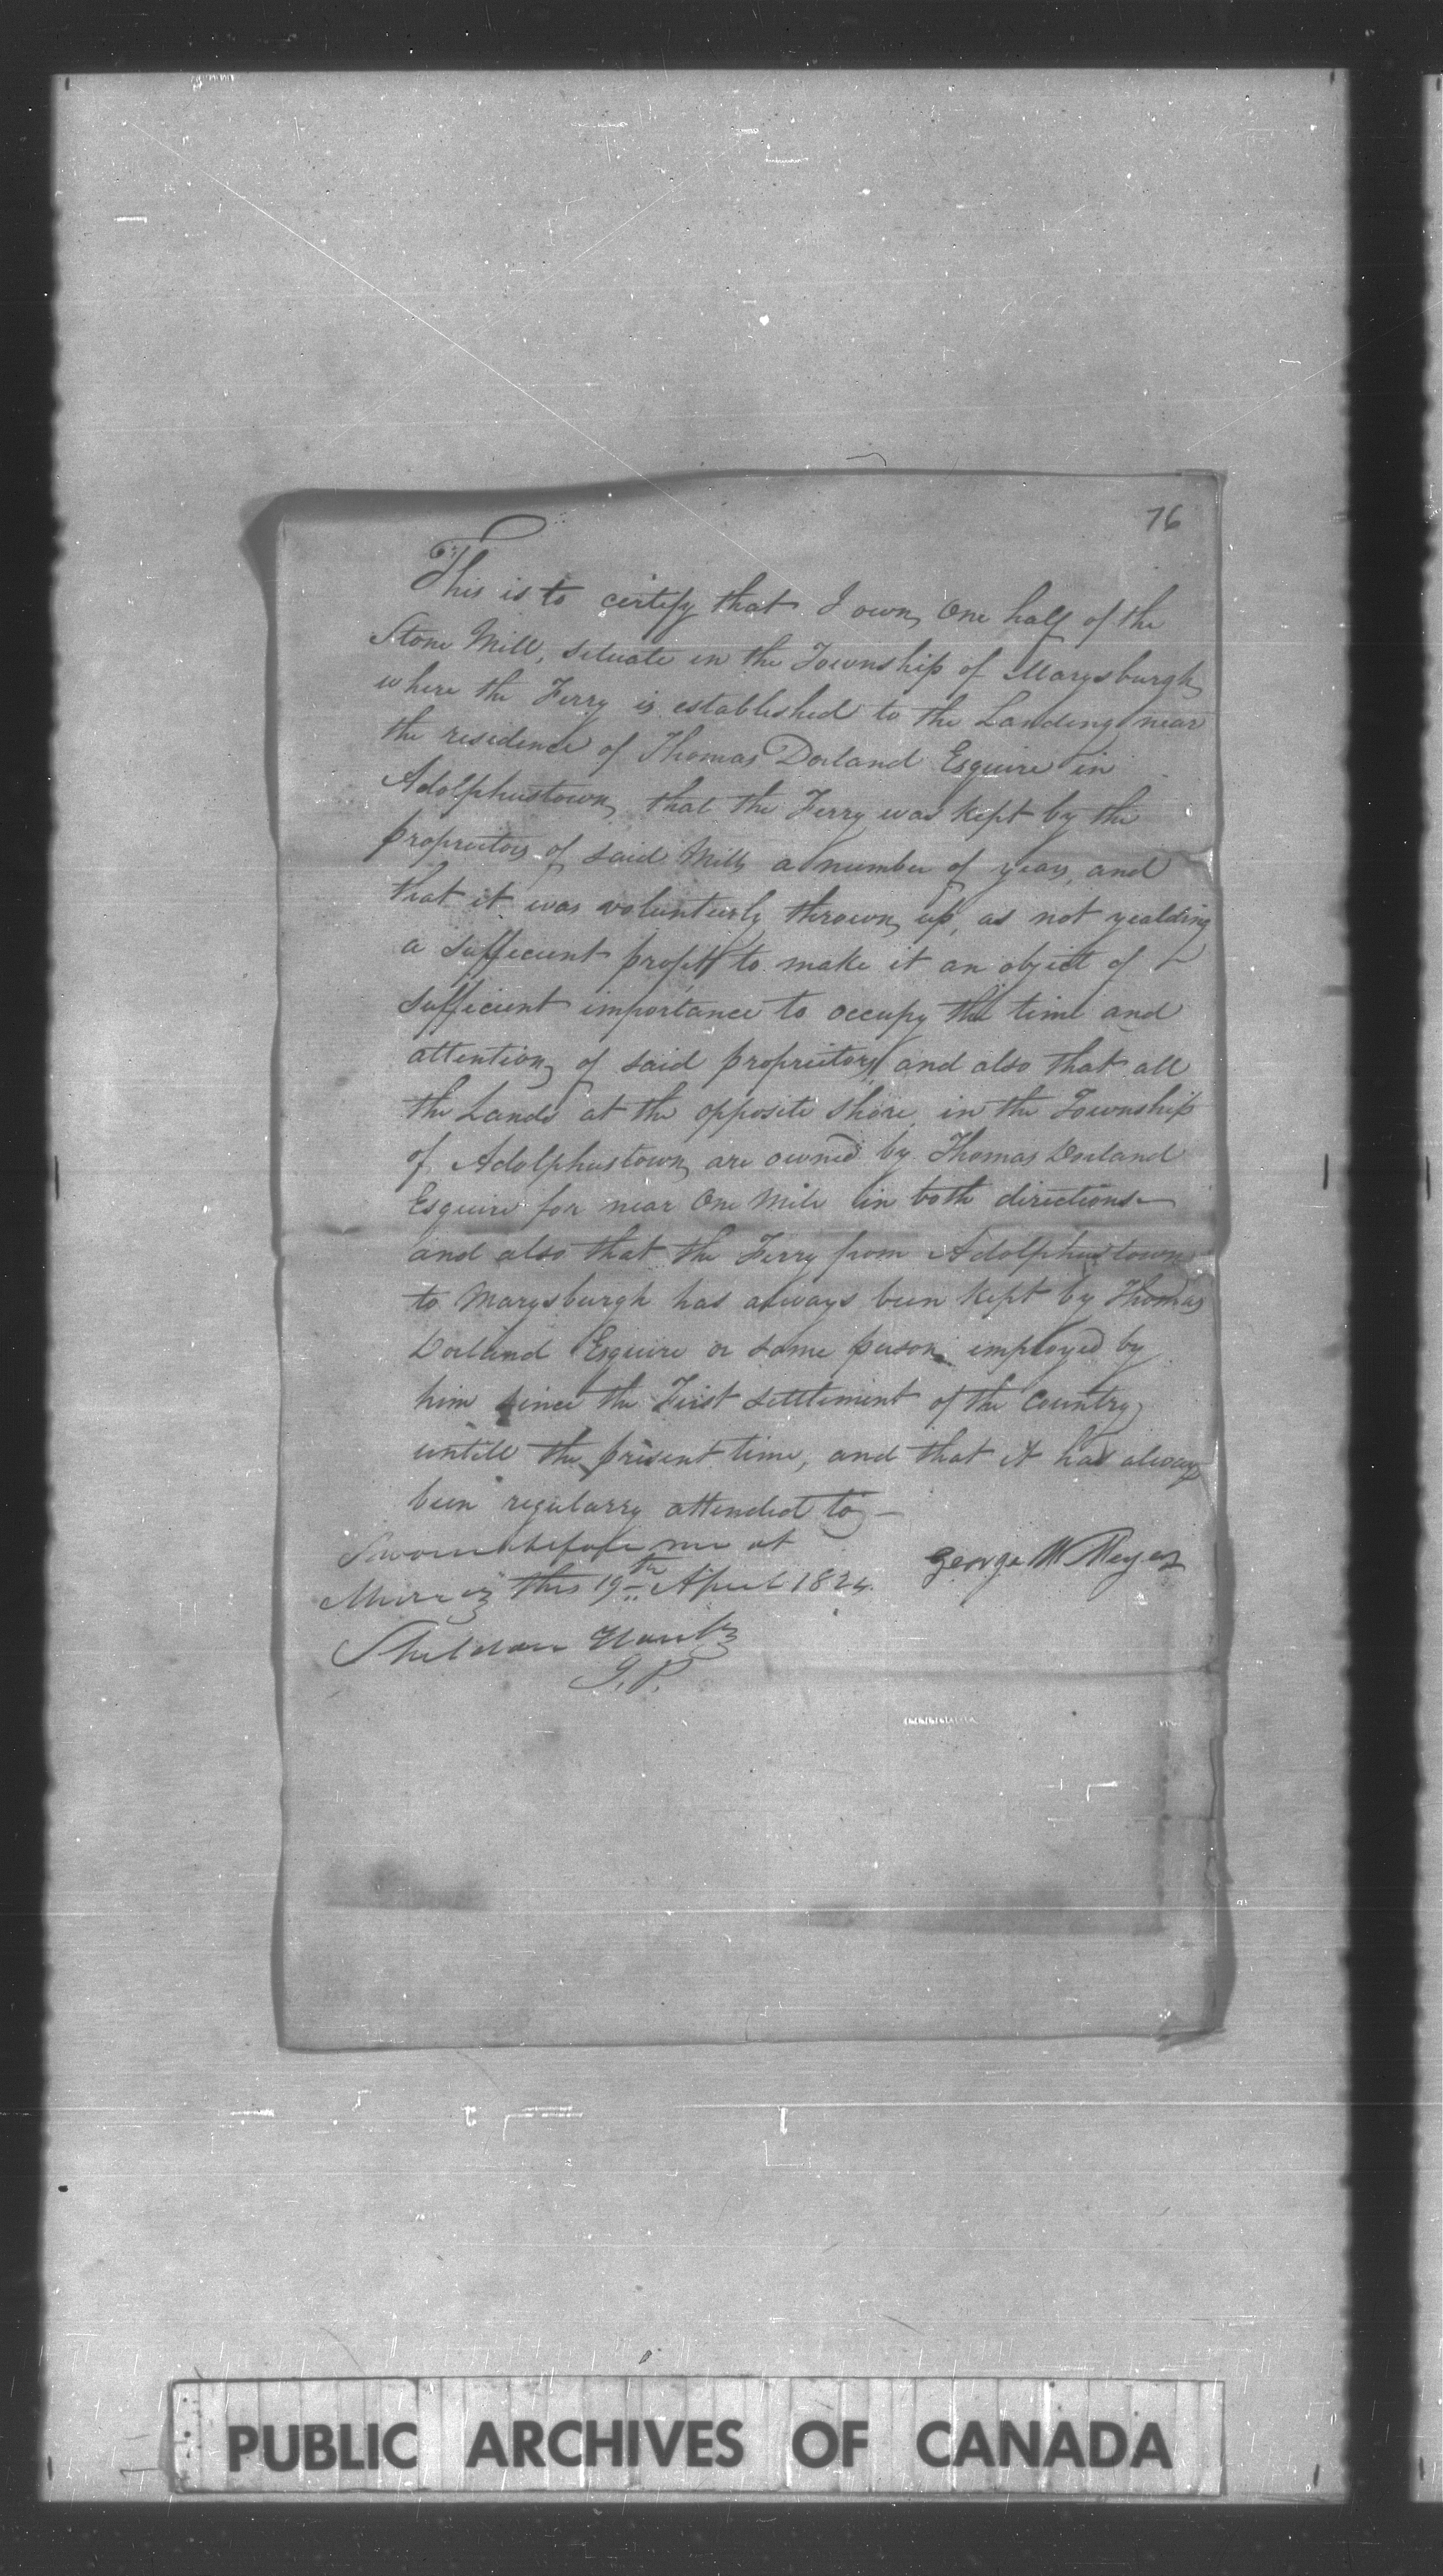 76
This is to certify that I own One half of the
Stone Mill, situate in the Township of Marysburgh
where the Ferry is established to the Landing near
the residence of Thomas Dorland Esquire in
Adolphustown, that the Ferry was kept by the
proprietors of said Mills a number of years, and
that it was volunteerly thrown up, as not yealding
a suffecient profit to make it an object of
sufficient importance to occupy the time and
attention of said proprietors and also that all
the Lands at the opposite Shore in the Township
of Adolphustown are owned by Thomas Dorland
Esquire for near One Mile in both directions
and also that the Ferry from Adolphustown
to Marysburgh has always been kept by Thomas
Dorland Esquire or some person employed by
him since the First settlement of the Country
untill the present time, and that it has always
been regularry attended to —
Sworn before me at
George W Meyers
Murray this 19th April 1824.
Sheldon Hawley
J.P.
PUBLIC ARCHIVES OF CANADA